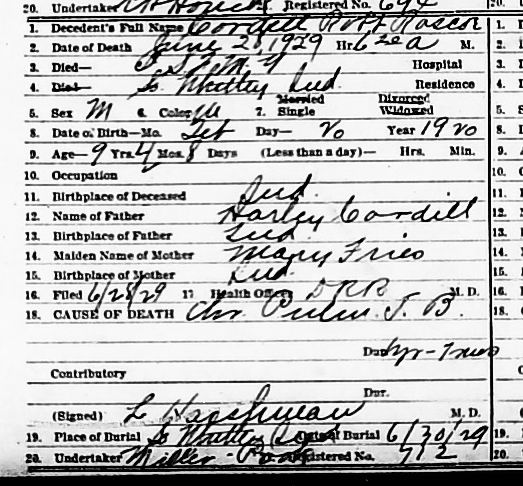 20. Undertaker Registered No. 694 20.
1. Decedent's Full Name Cordill Robt Roscoe 1.
2. Date of Death June 28, 1929 Hr. 6 20 a M. 2.
3. Died— Hospital 3.
4. Died— So Whitley Ind. Residence 4.
Married Divorced
5. Sex M 6. Color W 7. Single Widowed 5.
8. Date of Birth—Mo. Feb Day— 20 Year 1920 8.
9. Age—9 Yrs. 4 Mos. 8 Days (Less than a day)— Hrs. Min. 9.
10. Occupation 10.
11. Birthplace of Deceased Ind. 11.
12. Name of Father Harley Cordill 12.
13. Birthplace of Father Ind. 13.
14. Maiden Name of Mother Mary Fries 14.
15. Birthplace of Mother Ind. 15.
16. Filed 6/28/29 17 Health Officer M. D. 16.
18. CAUSE OF DEATH Chr. Pulm. T. B. 18.
Dur.
Contributory
Dur.
(Signed) L M. D.
19. Place of Burial So Whitley Date of Burial 6/30/29 19.
20. Undertaker Miller - Registered No. 712 20.